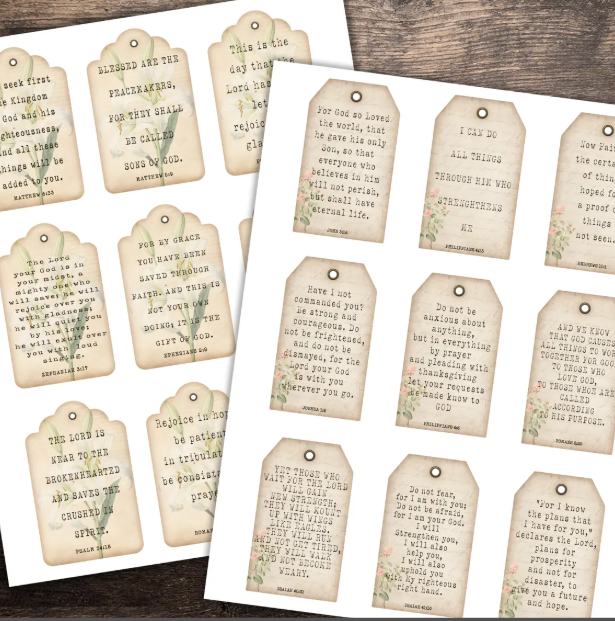 seek first
Kingdom
God and his
ghteousness,
nd all these
hings will be
added to you.
MATTHEW 6:33
BLESSED ARE THE
PEACEMAKERS,
FOR THEY SHALL
BE CALLED
SONS OF GOD.
MATTHEW 5:9
This is the
day that the
Lord has
let
rejoic
gla
The Lord
your God is in
your midst, a
mighty one who
will save; he will
rejoice over you
with gladness;
he will quiet you
by his love;
he will exult over
you with loud
singing.
ZEPHANIAH 3:17
FOR BY GRACE
YOU HAVE BEEN
SAVED THROUGH
FAITH. AND THIS IS
NOT YOUR OWN
DOING; IT IS THE
GIFT OF GOD.
EPHESIANS 2:8
THE LORD IS
NEAR TO THE
BROKENHEARTED
AND SAVES THE
CRUSHED IN
SPIRIT.
PSALM 34:18
Rejoice in hop
be patien
in tribulat
be consta
praye
ROMAN
For God so Loved
the world, that
he gave his only
Son, so that
everyone who
believes in him
will not perish,
but shall have
eternal life.
JOHN 3:16
I CAN DO
ALL THINGS
THROUGH HIM WHO
STRENGTHENS
ME
PHILIPPIANS 4:13
Now Fait
the certa
of thin
hoped fo
a proof o
things
not seen.
HEBREWS 11:1
Have I not
commanded you?
Be strong and
courageous. Do
not be frightened,
and do not be
dismayed, for the
Lord your God
is with you
wherever you go.
JOSHUA 1:9
Do not be
anxious about
anything,
but in everything
by prayer
and pleading with
thanksgiving
let your requests
be made know to
GOD
PHILIPPIANS 4:6
AND WE KNOW
THAT GOD CAUSES
ALL THINGS TO WOR
TOGETHER FOR GOO
TO THOSE WHO
LOVE GOD,
TO THOSE WHO ARE
CALLED
ACCORDING
TO HIS PURPOSE.
ROMANS 8:28
YET THOSE WHO
WAIT FOR THE LORD
WILL GAIN
NEW STRENGTH;
THEY WILL MOUNT
UP WITH WINGS
LIKE EAGLES,
THEY WILL RUN
AND NOT GET TIRED,
THEY WILL WALK
AND NOT BECOME
WEARY.
ISAIAH 40:31
Do not fear,
for I am with you;
Do not be afraid,
for I am your God.
I will
Strengthen you,
I will also
help you,
I will also
uphold you
with My righteous
right hand.
ISAIAH 41:10
"For I know
the plans that
I have for you,"
declares the Lord,
plans for
prosperity
and not for
disaster, to
give you a future
and hope.